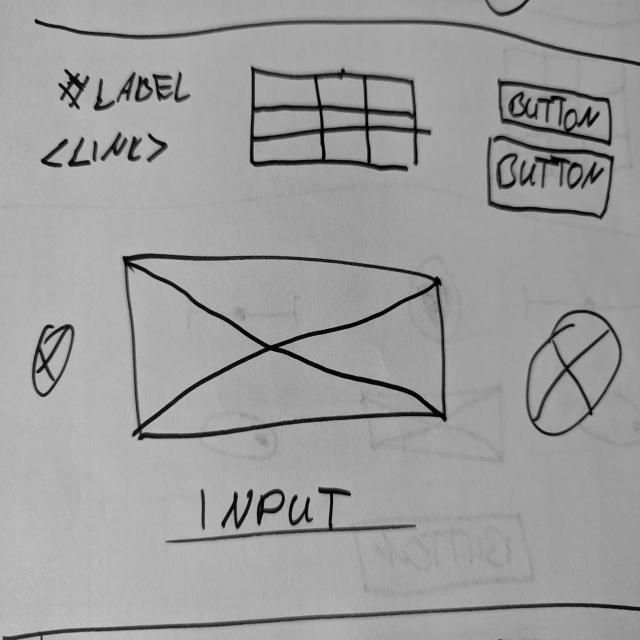 #LABEL
<LINK>
BUTTON
BUTTON
INPUT